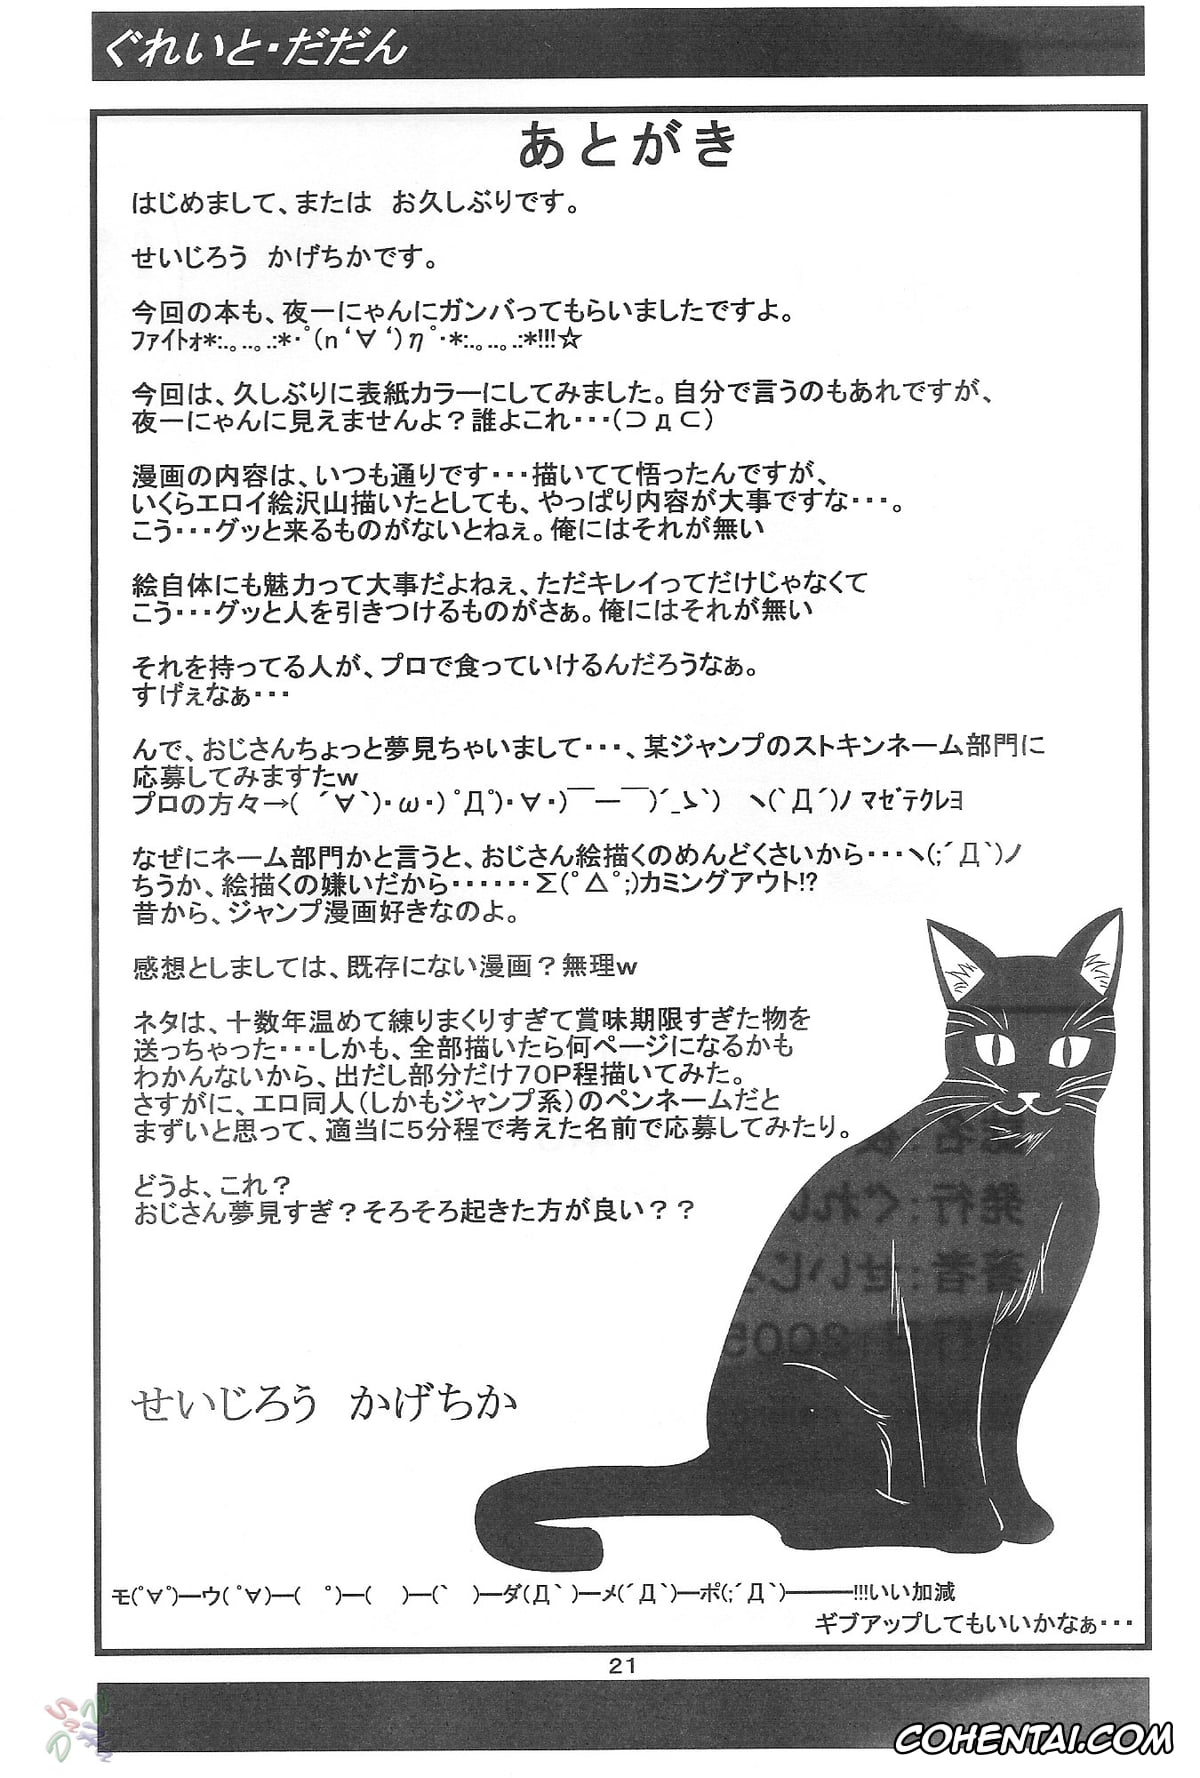 ぐれいと・だだん
あとがき
はじめまして、または　お久しぶりです。
せいじろう　かげちかです。
今回の本も、夜一にゃんにガンバってもらいましたですよ。
ﾌｧｲﾄｫ*:.｡..｡.:*･ﾟ(n‘∀‘)ηﾟ･*:.｡..｡.:*!!!☆
今回は、久しぶりに表紙カラーにしてみました。自分で言うのもあれですが、
夜一にゃんに見えませんよ？誰よこれ・・・(⊃д⊂)
漫画の内容は、いつも通りです・・・描いてて悟ったんですが、
いくらエロイ絵沢山描いたとしても、やっぱり内容が大事ですな・・・。
こう・・・グッと来るものがないとねぇ。俺にはそれが無い
絵自体にも魅力って大事だよねぇ、ただキレイってだけじゃなくて
こう・・・グッと人を引きつけるものがさぁ。俺にはそれが無い
それを持ってる人が、プロで食っていけるんだろうなぁ。
すげぇなぁ・・・
んで、おじさんちょっと夢見ちゃいまして・・・、某ジャンプのストキンネーム部門に
応募してみますたw
プロの方々→(　´∀｀)・ω・)ﾟДﾟ)・∀・)￣ー￣)´_ゝ`)　ヽ(`Д´)ﾉ ﾏｾﾞﾃｸﾚﾖ
なぜにネーム部門かと言うと、おじさん絵描くのめんどくさいから・・・ヽ(;´Д｀)ノ
ちうか、絵描くの嫌いだから・・・・・・Σ(ﾟ△ﾟ;)カミングアウト!?
昔から、ジャンプ漫画好きなのよ。
感想としましては、既存にない漫画？無理w
ネタは、十数年温めて練りまくりすぎて賞味期限すぎた物を
送っちゃった・・・しかも、全部描いたら何ページになるかも
わかんないから、出だし部分だけ70P程描いてみた。
さすがに、エロ同人(しかもジャンプ系)のペンネームだと
まずいと思って、適当に5分程で考えた名前で応募してみたり。
どうよ、これ？
おじさん夢見すぎ？そろそろ起きた方が良い？？
せいじろう　かげちか
モ(ﾟ∀ﾟ)―ウ( ﾟ∀)―(　 ﾟ)―(　 )―(`　)―ダ(Д｀)―メ(´Д｀)―ポ(;´Д｀)―――!!!いい加減
ギブアップしてもいいかなぁ・・・
21
COHENTAI.COM